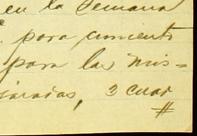 en la semana
para cimiento
para las mis-
2 cuar
#